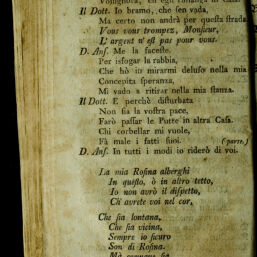 Il Dott. Io bramo, che sen vada.
Ma certo non andrà per questa strada
Vous vous trompez, Monsieur,
L' argent n' est pas pour vous.
D. Ans. Me la faceste.
Per isfogar la rabbia,
Che hò in mirarmi deluso nella mia
Concepita speranza,
Mi vado a ritirar nella mia stanza.
Il Dott. E perchè disturbata
Non sia la vostra pace,
Farò passar le Putte in altra Casa.
Chi corbellar mi vuole,
Fà male i fatti suoi. (parte.)
D. Ans. In tutti i modi io riderò di voi.
La mia Rosina alberghi
In questo, ò in altro tetto,
Io non avrò il dispetto,
Ci avrete voi nel cor,
Che sia lontana,
Che sia vicina,
Sempre io sicuro
Son di Rosina.